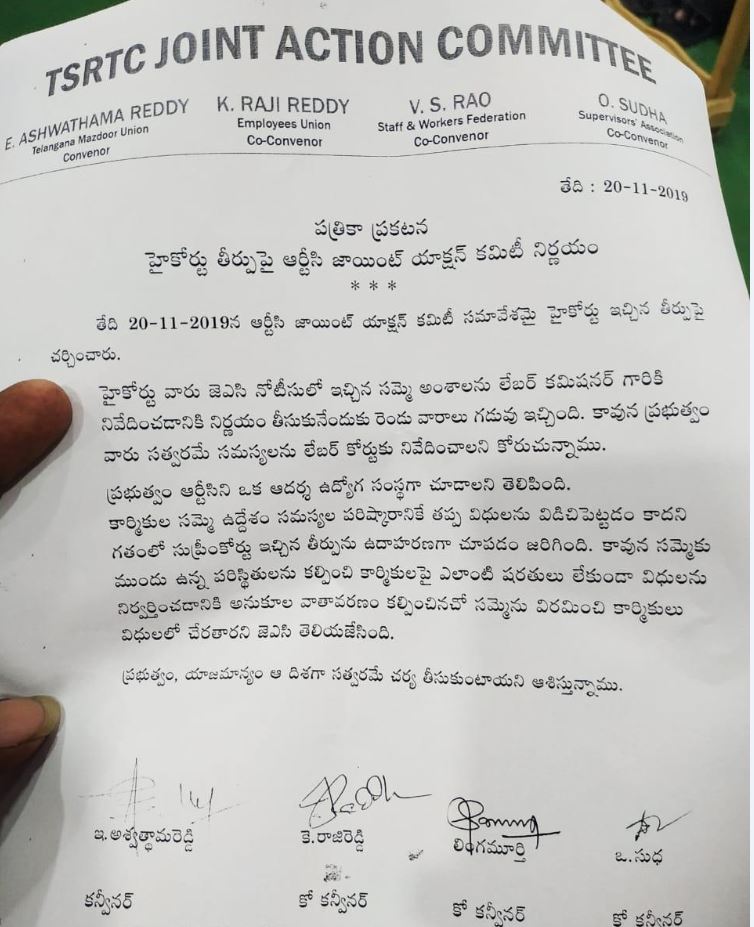 TSRTC JOINT ACTION COMMITTEE
E. ASHWATHAMA REDDY
Telangana Mazdoor Union
Convenor
K. RAJI REDDY
Employees Union
Co-Convenor
V. S. RAO
Staff & Workers Federation
Co-Convenor
O. SUDHA
Supervisors' Association
Co-Convenor
తేది : 20-11-2019
పత్రికా ప్రకటన
హైకోర్టు తీర్పుపై ఆర్టీసి జాయింట్ యాక్షన్ కమిటీ నిర్ణయం
* * *
తేది 20-11-2019న ఆర్టీసి జాయింట్ యాక్షన్ కమిటీ సమావేశమై హైకోర్టు ఇచ్చిన తీర్పుపై
చర్చించారు.
హైకోర్టు వారు జెఎసి నోటీసులో ఇచ్చిన సమ్మె అంశాలను లేబర్ కమిషనర్ గారికి
నివేదించడానికి నిర్ణయం తీసుకునేందుకు రెండు వారాలు గడువు ఇచ్చింది. కావున ప్రభుత్వం
వారు సత్వరమే సమస్యలను లేబర్ కోర్టుకు నివేదించాలని కోరుచున్నాము.
ప్రభుత్వం ఆర్టీసిని ఒక ఆదర్శ ఉద్యోగ సంస్థగా చూడాలని తెలిపింది.
కార్మికుల సమ్మె ఉద్దేశం సమస్యల పరిష్కారానికే తప్ప విధులను విడిచిపెట్టడం కాదని
గతంలో సుప్రీంకోర్టు ఇచ్చిన తీర్పును ఉదాహరణగా చూపడం జరిగింది. కావున సమ్మెకు
ముందు ఉన్న పరిస్థితులను కల్పించి కార్మికులపై ఎలాంటి షరతులు లేకుండా విధులను
నిర్వర్తించడానికి అనుకూల వాతావరణం కల్పించినచో సమ్మెను విరమించి కార్మికులు
విధులలో చేరతారని జెఎసి తెలియజేసింది.
ప్రభుత్వం, యాజమాన్యం ఆ దిశగా సత్వరమే చర్య తీసుకుంటాయని ఆశిస్తున్నాము.
ఇ.అశ్వత్థామరెడ్డి
కె.రాజిరెడ్డి
లింగమూర్తి
ఒ.సుధ
కన్వీనర్
కో కన్వీనర్
కో కన్వీనర్
కో కన్వీనర్